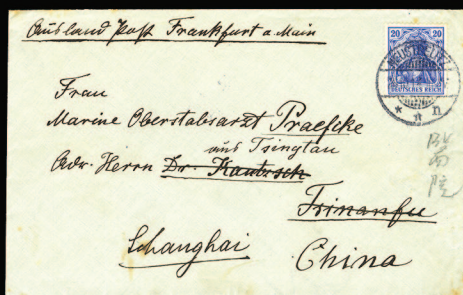 Ausland Post Frankfurt a. Main
20 20
DEUTSCHES REICH
Frau
Marine Oberstabsarzt Praefcke
aus Tsingtau
Adr. Herrn Dr. Kautzsch
Tsinanfu
Schanghai
China